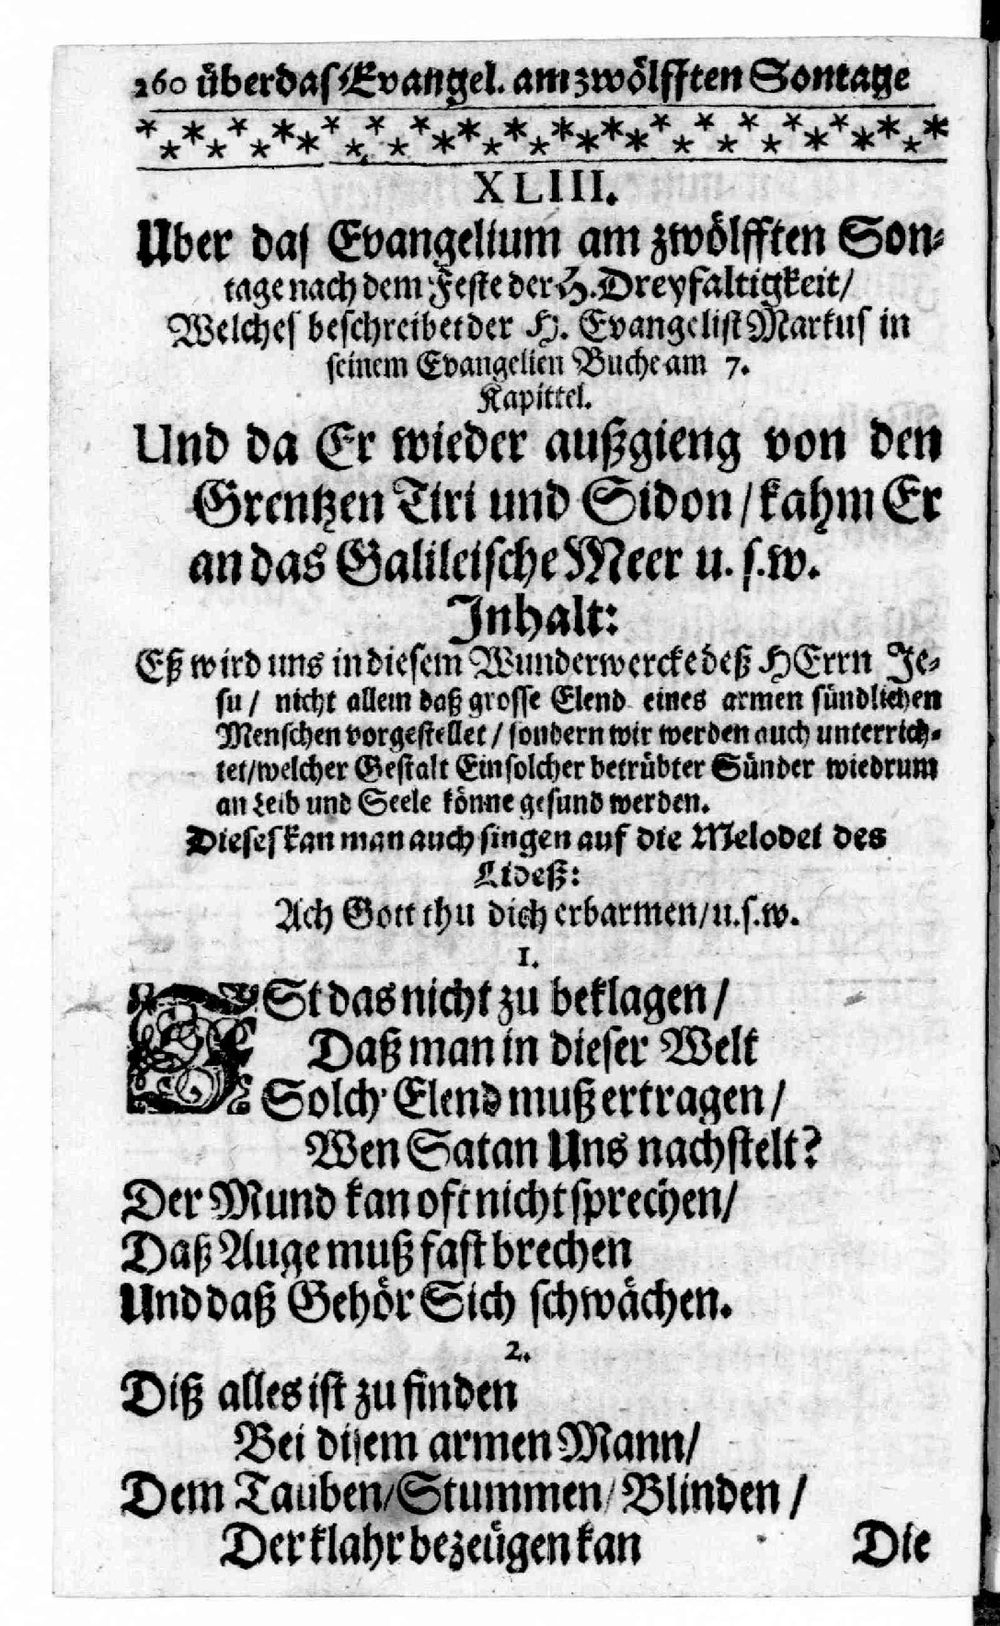 260 über das Evangel. am zwölfften Sontage
XLIII.
Uber das Evangelium am zwölfften Son-
tage nach dem Feste der H. Dreyfaltigkeit/
Welches beschreibet der H. Evangelist Markus in
seinem Evangelien Buche am 7.
Kapittel.
Und da Er wieder außgieng von den
Grentzen Tiri und Sidon/ kahm Er
an das Galileische Meer u. s. w.
Inhalt:
Eß wird uns in diesem Wunderwercke deß HErrn Je-
su/ nicht allein daß grosse Elend eines armen sündlichen
Menschen vorgestellet/ sondern wir werden auch unterrich-
tet/ welcher Gestalt Ein solcher betrübter Sünder wiedrum
an Leib und Seele könne gesund werden.
Dieses kan man auch singen auf die Melodei des
Lideß:
Ach Gott thu dich erbarmen/ u. s. w.
1.
ISt das nicht zu beklagen/
Daß man in dieser Welt
Solch' Elend muß ertragen/
Wen Satan Uns nachstelt?
Der Mund kan oft nicht sprechen/
Daß Auge muß fast brechen
Und daß Gehör Sich schwächen.
2.
Diß alles ist zu finden
Bei disem armen Mann/
Dem Tauben/ Stummen/ Blinden/
Der klahr bezeügen kan
Die